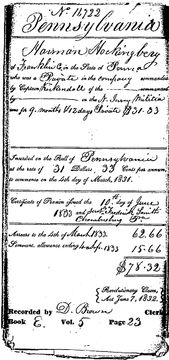 No. 11,722
Pennsylvania
Harman Hockingbery
of Franklin Co. in the State of Penna.
who was a Private in the company commanded
by Captain Kirkendall of the commanded
by in the N. Jersey Militia
was for 9 months & 12 days Private $31.33
Inscribed on the Roll of Pennsylvania
at the rate of 31 Dollars, 33 Cents per annum,
to commence on the 4th day of March, 1831.
Certificate of Pension issued the 10 day of June
1833 Frederick Smith
Chambersburg Pa
Arrears to the 4th of March 1833 62.66
Semi-anl. allowance ending 4 Sept. 1833 15.66
$78.32
Revolutionary Claim,
Act June 7, 1832.
Recorded by D. Brown Clerk
Book E. Vol. 5 Page 23